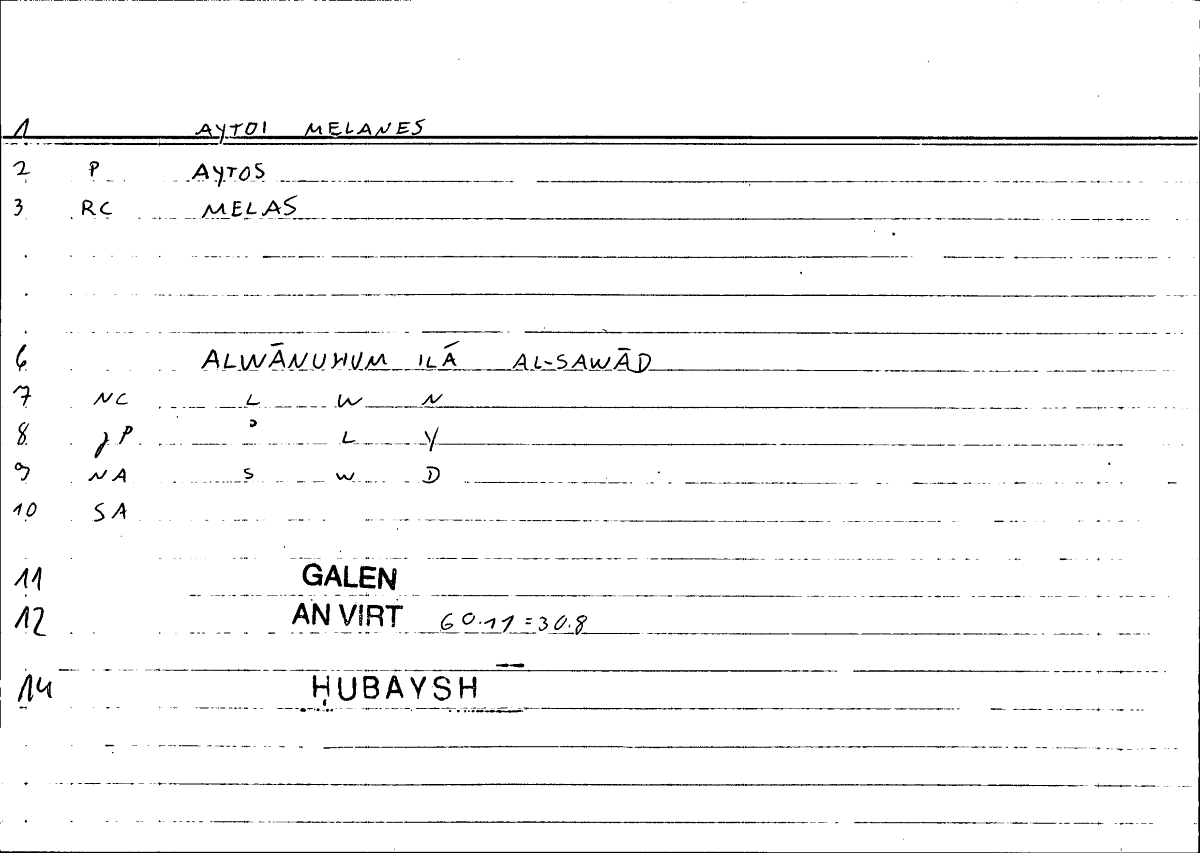 1 AYTOI MELANES
2 P AYTOS
3 RC MELAS
6 ALWĀNUHUM ILÁ AL-SAWĀD
7 NC L W N
8 P ʾ L Y
9 NA S W D
10 SA
11 GALEN
12 AN VIRT 60.11=30.8
14 ḤUBAYSH